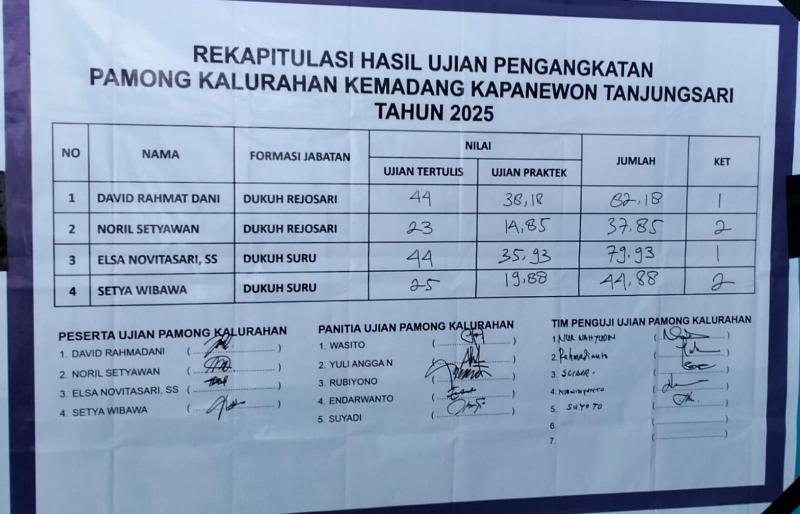 REKAPITULASI HASIL UJIAN PENGANGKATAN
PAMONG KALURAHAN KEMADANG KAPANEWON TANJUNGSARI
TAHUN 2025
NO NAMA FORMASI JABATAN NILAI JUMLAH KET
UJIAN TERTULIS UJIAN PRAKTEK
1 DAVID RAHMAT DANI DUKUH REJOSARI 44 38,18 82,18 1
2 NORIL SETYAWAN DUKUH REJOSARI 23 14,85 37.85 2
3 ELSA NOVITASARI, SS DUKUH SURU 44 35.93 79.93 1
4 SETYA WIBAWA DUKUH SURU 25 19,88 44,88 2
PESERTA UJIAN PAMONG KALURAHAN
1. DAVID RAHMADANI
2. NORIL SETYAWAN
3. ELSA NOVITASARI, SS
4. SETYA WIBAWA
PANITIA UJIAN PAMONG KALURAHAN
1. WASITO
2. YULI ANGGA N
3. RUBIYONO
4. ENDARWANTO
5. SUYADI
TIM PENGUJI UJIAN PAMONG KALURAHAN
1.
2. Rahmadianto
3.
4.
5. SUYOTO
6.
7.